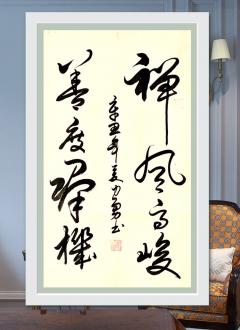 禪风高峻
善度群機
辛丑年 书